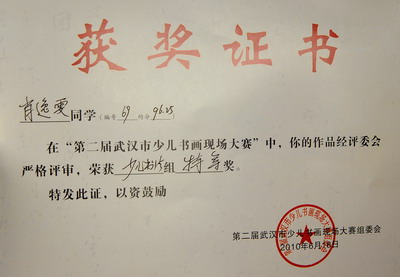 获奖证书
肖逸雯同学（编号69得分96.25
在“第二届武汉市少儿书画现场大赛”中，你的作品经评委会
严格评审，荣获少儿书法组特等奖。
特发此证，以资鼓励
第二届武汉市少儿书画现场大赛组委会
2010年6月18日